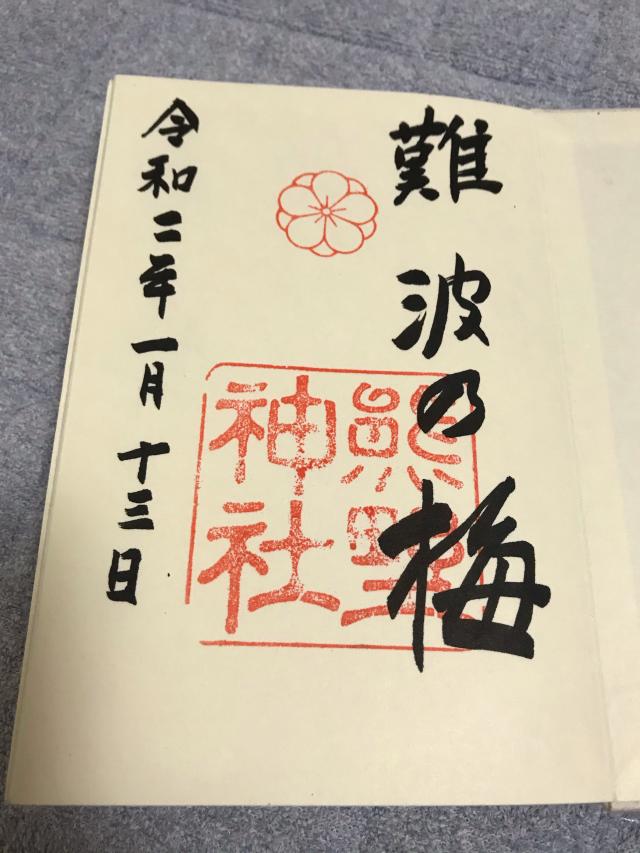 難波乃梅
熊野
神社
令和二年一月十三日